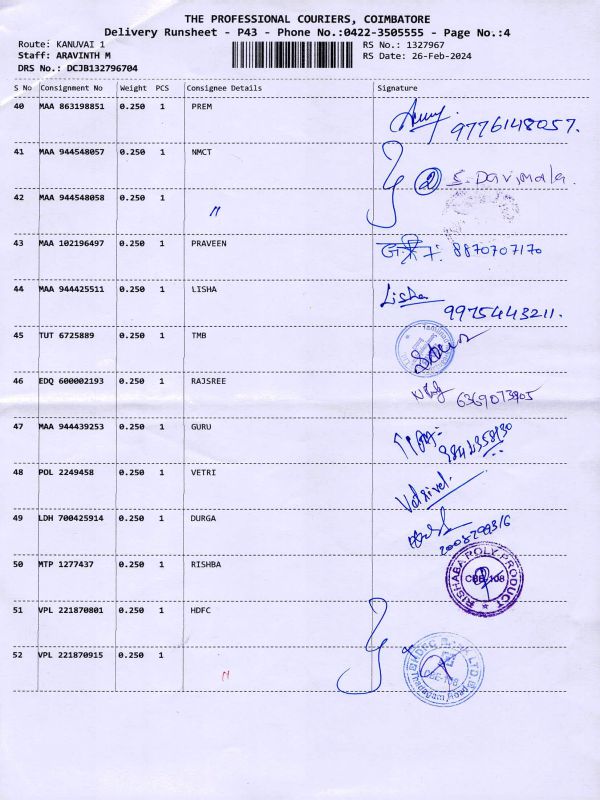 THE PROFESSIONAL COURIERS, COIMBATORE
Delivery Runsheet - P43 - Phone No.:0422-3505555 - Page No.:4
Route: KANUVAI 1 RS No.: 1327967
Staff: ARAVINTH M RS Date: 26-Feb-2024
DRS No.: DCJB132796704
S No Consignment No Weight PCS Consignee Details Signature
40 MAA 863198851 0.250 1 PREM
9776148057.
41 MAA 944548057 0.250 1 NMCT
2 S. Davimala.
42 MAA 944548058 0.250 1 "
43 MAA 102196497 0.250 1 PRAVEEN
8870707170
44 MAA 944425511 0.250 1 LISHA
Lisha 9975443211.
45 TUT 6725889 0.250 1 TMB
46 EDQ 600002193 0.250 1 RAJSREE
6369073905
47 MAA 944439253 0.250 1 GURU
48 POL 2249458 0.250 1 VETRI
Vetrivel.
49 LDH 700425914 0.250 1 DURGA
50 MTP 1277437 0.250 1 RISHBA
RISHABA POLY PRODUCT
CBE-108
51 VPL 221870801 0.250 1 HDFC
52 VPL 221870915 0.250 1 "
HDFC LTD
CBE-108
Thadagam Road